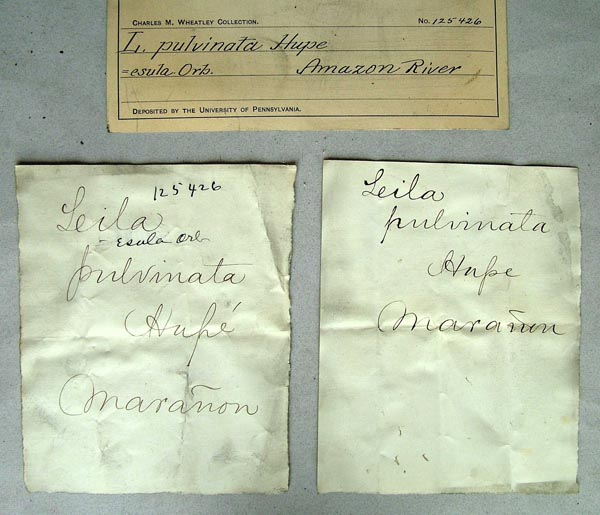 CHARLES M. WHEATLEY COLLECTION. No. 125426
L. pulvinata Hupe
=esula Orb. Amazon River
DEPOSITED BY THE UNIVERSITY OF PENNSYLVANIA.
125426
Leila
= Esula Orb
pulvinata
Hupé
Marañon
Leila
pulvinata
Hupe
Marañon